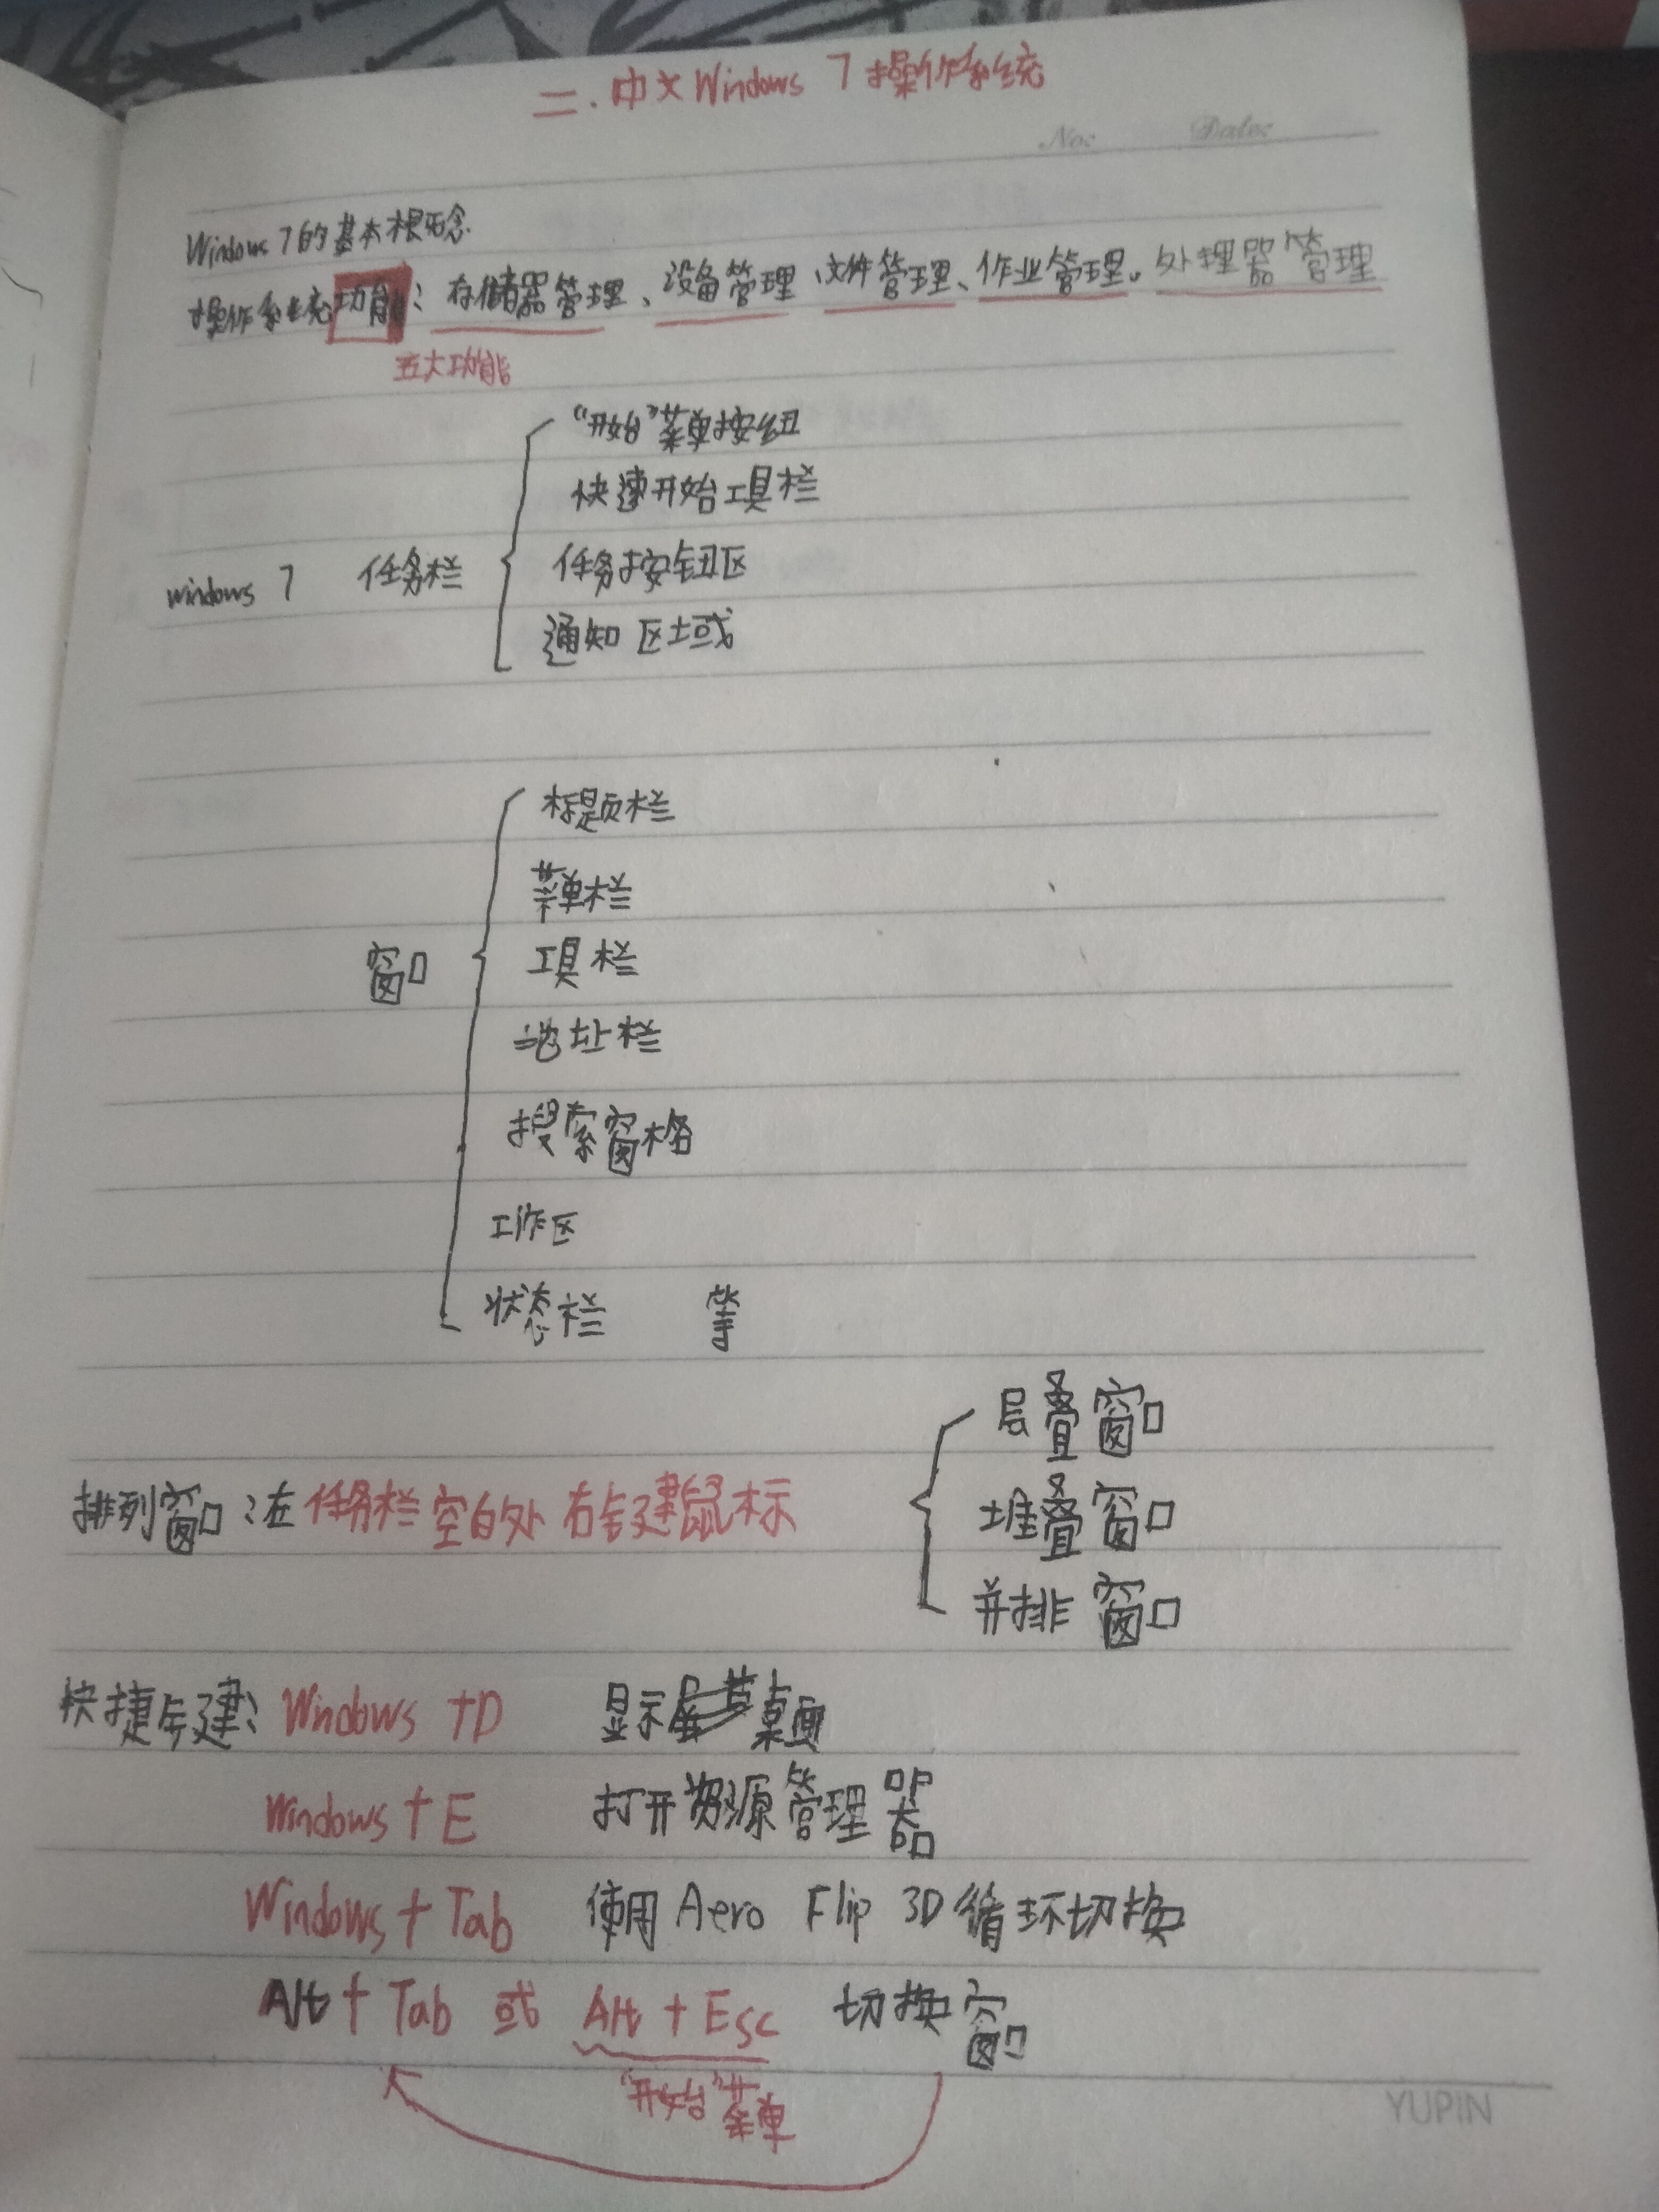 二.中文Windows 7操作系统
No: Date:
Windows 7的基本概念
操作系统功能:存储器管理、设备管理、文件管理、作业管理。处理器管理
五大功能
"开始"菜单按钮
快速开始工具栏
windows 7 任务栏
任务按钮区
通知区域
标题栏
菜单栏
窗口
工具栏
地址栏
搜索窗格
工作区
状态栏 等
层叠窗口
排列窗口:在任务栏空白处右键鼠标
堆叠窗口
并排窗口
快捷键: Windows +D 显示桌面
Windows + E 打开资源管理器
Windows + Tab 使用 Aero Flip 3D 循环切换
Alt + Tab 或 Alt + Esc 切换窗口
"开始"菜单
YUPIN